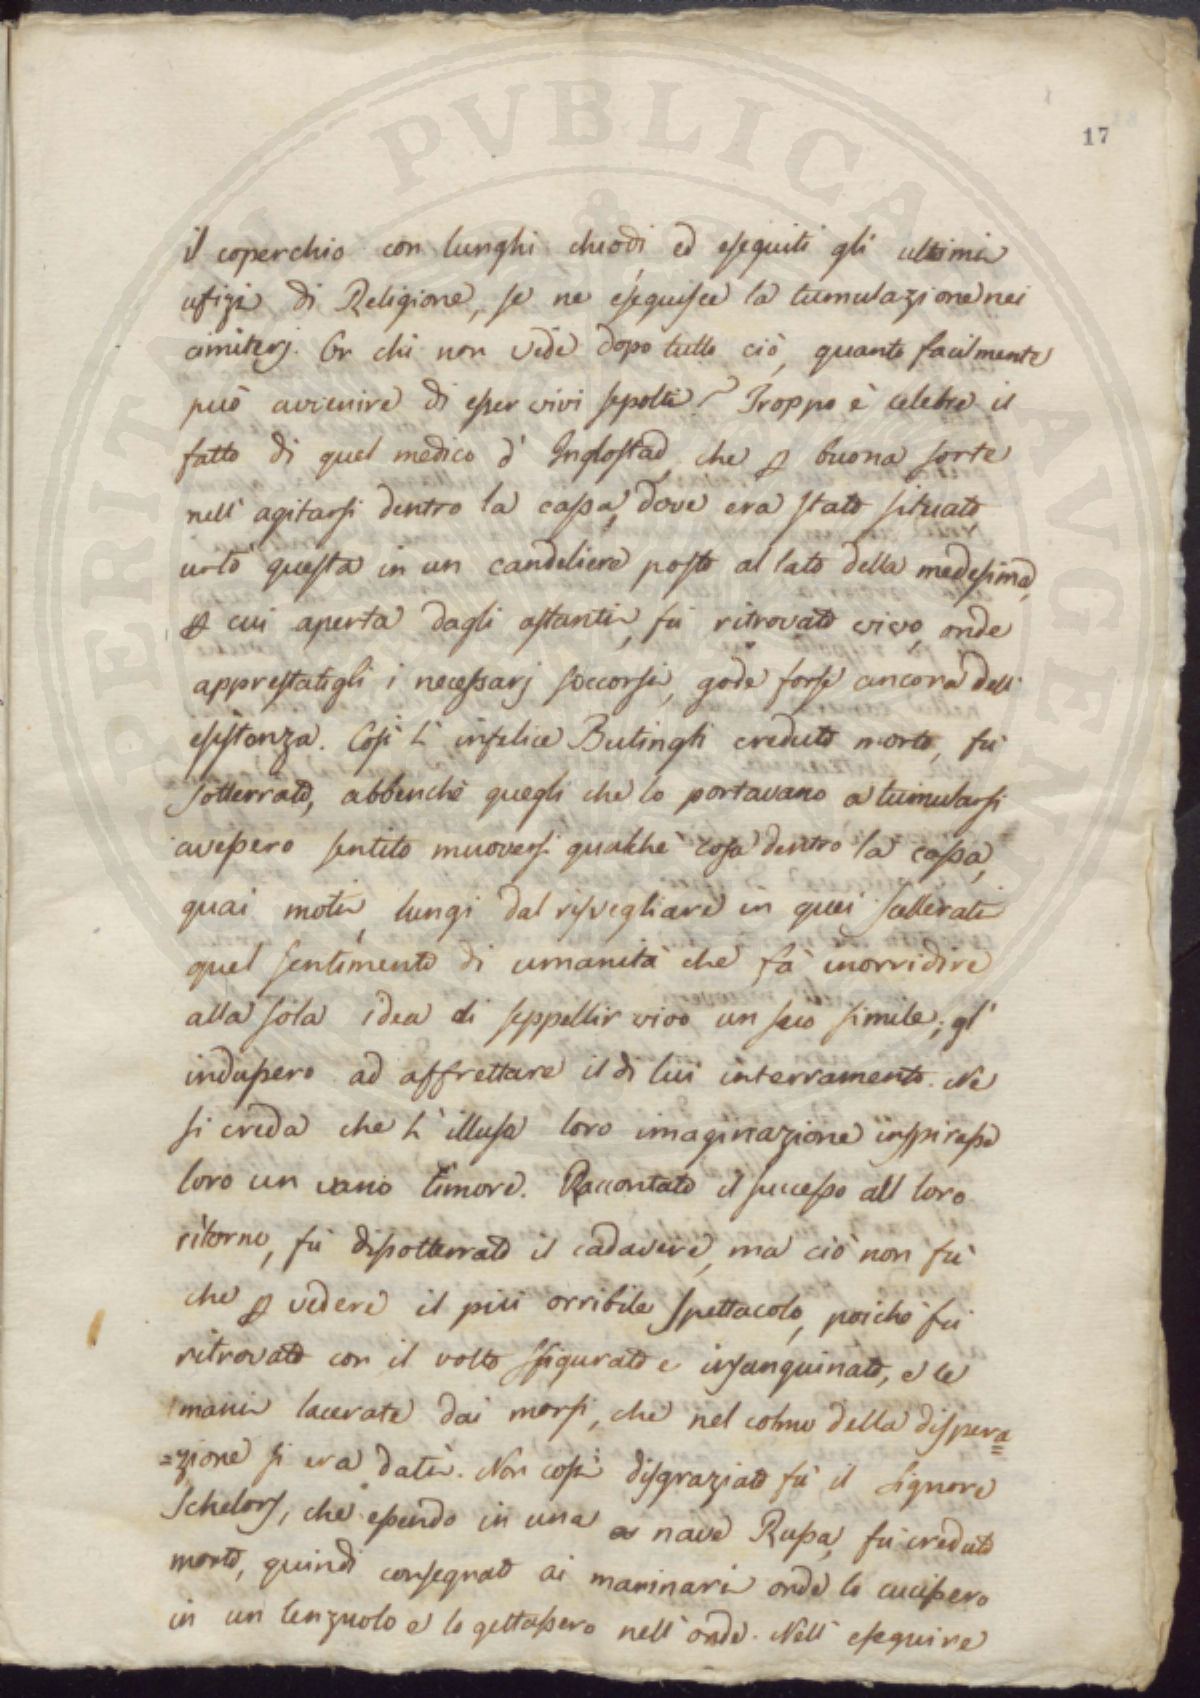 17
il coperchio con lunghi chiodi, ed eseguiti gli ultimi
ufizi di Religione, se ne eseguisce la tumulazione nei
cimiterj. Or chi non vede dopo tutto ciò, quanto facilmente
può avvenire di esser vivi sepolti? Troppo è celebre il
fatto di quel medico d' Inglostad, che p buona sorte
nell' agitarsi dentro la cassa, dove era stato situato
urtò questa in un candeliere posto al lato della medesima,
p cui aperta dagli astanti, fù ritrovato vivo, onde
apprestatigli i necessarj soccorsi, gode forse ancora dell'
esistenza. Così l' infelice Butingh creduto morto, fù
sotterrato, abbenchè quegli che lo portavano a tumularsi
avessero sentito muoversi qualche cosa dentro la cassa,
quai moti, lungi dal risvegliare in quei scellerati
quel sentimento di umanità che fà inorridire
alla sola idea di seppellir vivo un suo simile, gl'
indussero ad affrettare il di lui interramento. Ne
si creda che l' illusa loro imaginazione inspirasse
loro un vano timore. Raccontato il successo all loro
ritorno, fù dissotterrato il cadavere, ma ciò non fù
che p vedere il più orribile spettacolo, poichè fù
ritrovato con il volto sfigurato e insanguinato, e le
mani lacerate dai morsi, che nel colmo della dispera=
=zione si era dati. Non così disgraziato fù il Signore
Schelors, che essendo in una nave Russa, fù creduto
morto, quindi consegnato ai marinari onde lo cucissero
in un lenzuolo e lo gettassero nell' onde. Nell' eseguire
PUBLICAE
AUGENDAE
PERITAN